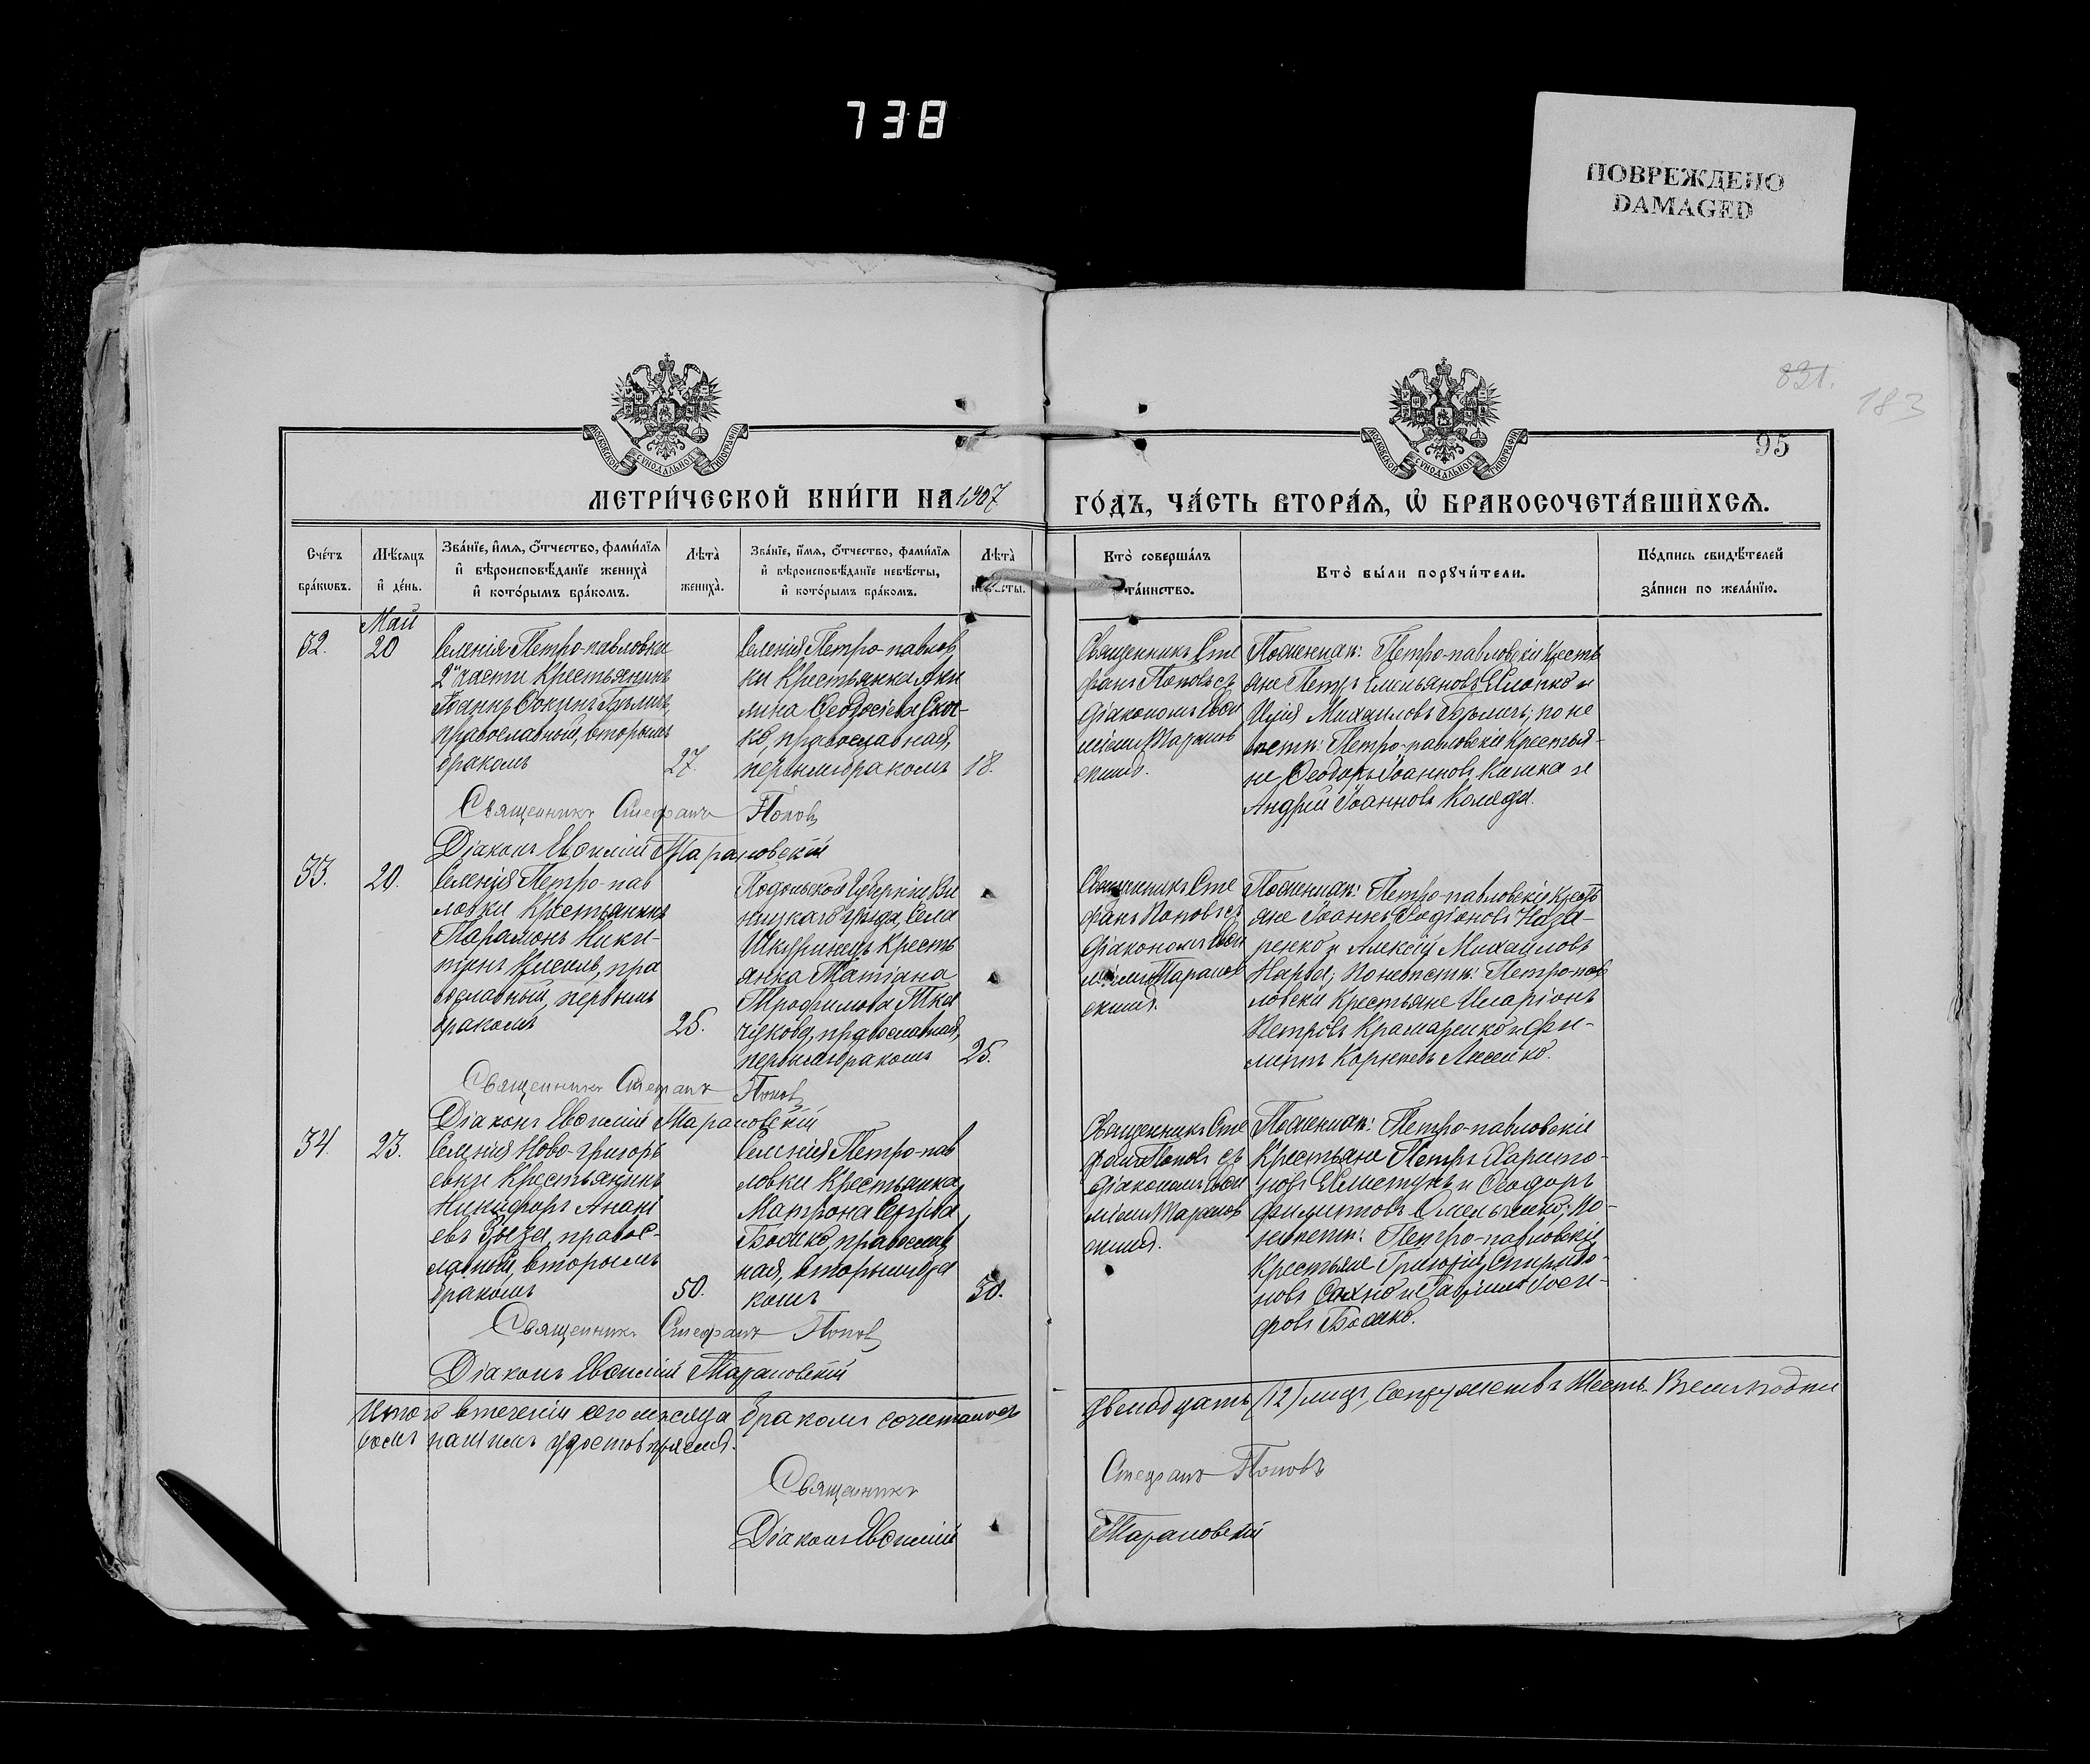 738
ПОВРЕЖДЕНО
DAMAGED
831.
183
95
МОСКОВСКОЙ СѴНОДАЛЬНОЙ ТИПОГРАФІИ
МОСКОВСКОЙ СѴНОДАЛЬНОЙ ТИПОГРАФІИ
МЕТРИ́ЧЕСКОЙ КНИ́ГИ НА 1907
ГО́ДЪ, ЧА́СТЬ ВТОРА́Я, Ѡ БРАКОСОЧЕТА́ВШИХСЯ.
Сче́тъ
бра́кωвъ.
Мѣ́сяцъ
и҆ де́нь.
Зва́нїе, и҆́мя, ѻ҆́тчество, фами́лїя
и҆ вѣроисповѣ́данїе жениха̀
и҆ кото́рымъ бра́комъ.
Лѣта̀
жениха̀.
Зва́нїе, и҆́мя, ѻ҆́тчество, фами́лїя
и҆ вѣроисповѣ́данїе невѣ́сты,
и҆ кото́рымъ бра́комъ.
Лѣта̀
невѣсты.
Кто̀ соверша́лъ
таинство.
Кто̀ бы́ли порꙋчи́тели.
По́дпись свидѣ́телей
за́писи по жела́нїю.
Май
32.
20
Селенія Петро-павловки
2й части Крестьянинъ
Іоаннъ
православный, вторымъ
бракомъ
27.
Селенія Петро-павлов
ки Крестьянка Аки
лина Ѳеодосіева
ко, православная,
первымъ бракомъ
18.
Священникъ Сте
фанъ Поповъ съ
діакономъ Евѳи
міемъ Таранов
скимъ.
По женихѣ: Петро-павловскіе Кресть
яне Петръ Емельяновъ и
Илія Михаиловъ по не
вѣстѣ: Петро-павловскіе Крестья-
не Ѳеодоръ Іоанновъ Кишка и
Андрей Іоанновъ Коляда.
Священникъ Стефанъ Поповъ
Діаконъ Евѳимій Тарановскій
33.
20.
Селенія Петро-пав
ловки Крестьянинъ
Парамонъ Ники-
тинъ Кисиль, пра
вославный, первымъ
бракомъ
25.
Подольской Губерніи Ви
ницкаго уѣзда, села
Шкуринецъ Кресть
янка Татіана
Трофимова Тка
чукова, православная,
первымъ бракомъ
25.
Священникъ Сте
фанъ Поповъ съ
діакономъ Евѳи
міемъ Таранов
скимъ.
По женихѣ: Петро-павловскіе Кресть
яне Іоаннъ Родіоновъ Наза-
ренко и Алексѣй Михаиловъ
по невѣстѣ: Петро-пав
ловскіе Крестьяне Иларіонъ
Петровъ Крамаренко и Фи-
липпъ Корніевъ
Священникъ Стефанъ Поповъ
Діаконъ Евѳимій Тарановскій
34.
23.
Селенія Ново-григорь
евки Крестьянинъ
Никифоръ Анані
евъ правос-
лавный, вторымъ
бракомъ
50.
Селенія Петро-пав
ловки Крестьянка,
Матрона Сергіева
Божко, православ
ная, вторымъ бра
комъ
50.
Священникъ Сте
фанъ Поповъ съ
діакономъ Евѳи
міемъ Таранов
скимъ.
По женихѣ: Петро-павловскіе
Крестьяне Петръ Харито-
новъ и Ѳеодоръ
Филипповъ Омельченко; по
невѣстѣ: Петро-павловскіе
Крестьяне Григорій Спиридо-
новъ Сахно и Гавріилъ Ѳоси-
фовъ Божко.
Священникъ Стефанъ Поповъ
Діаконъ Евѳимій Тарановскій
Итого втеченіи сего мѣсяца бракомъ сочеталось двенадцать (12) лицъ, Супружествъ Шесть. Въ чемъ подпи
сомъ нашимъ удостовѣряемъ.
Священникъ Стефанъ Поповъ
Діаконъ Евѳимій Тарановскій